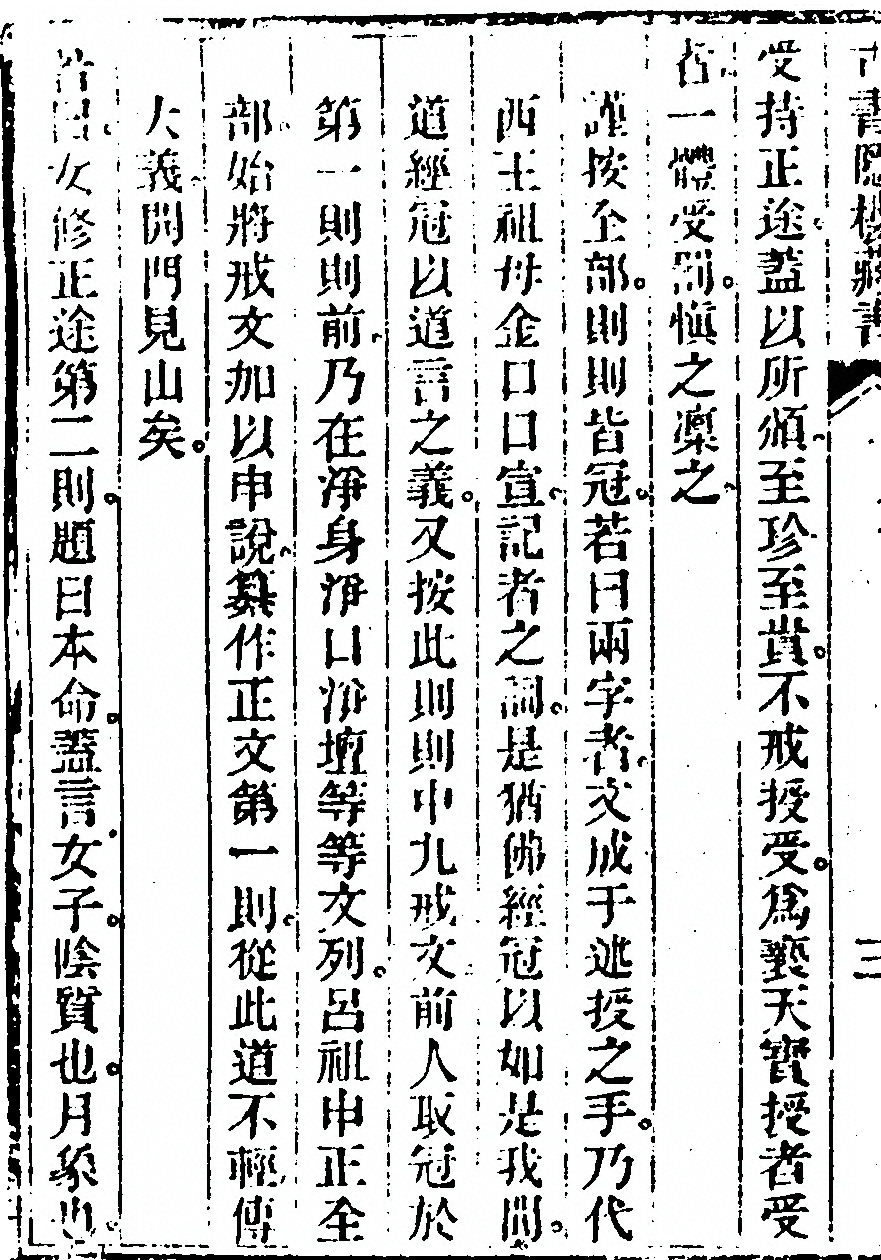 古書隱樓藏書
三
受持正途蓋以所頒至珍至貴不戒授受為褻天寶授者受
者一體受罰慎之凜之
謹按全部則則皆冠若曰兩字者文成于述授之手乃代
西王祖母金口口宣記者之詞是猶佛經冠以如是我聞
道經冠以道言之義又按此則則中九戒文前人取冠於
第一則則前乃在淨身淨口淨壇等等文列呂祖申正全
部始將戒文加以申說纂作正文第一則從此道不輕傳
大義開門見山矣
若曰女修正途第二則題曰本命蓋言女子陰質也月象也